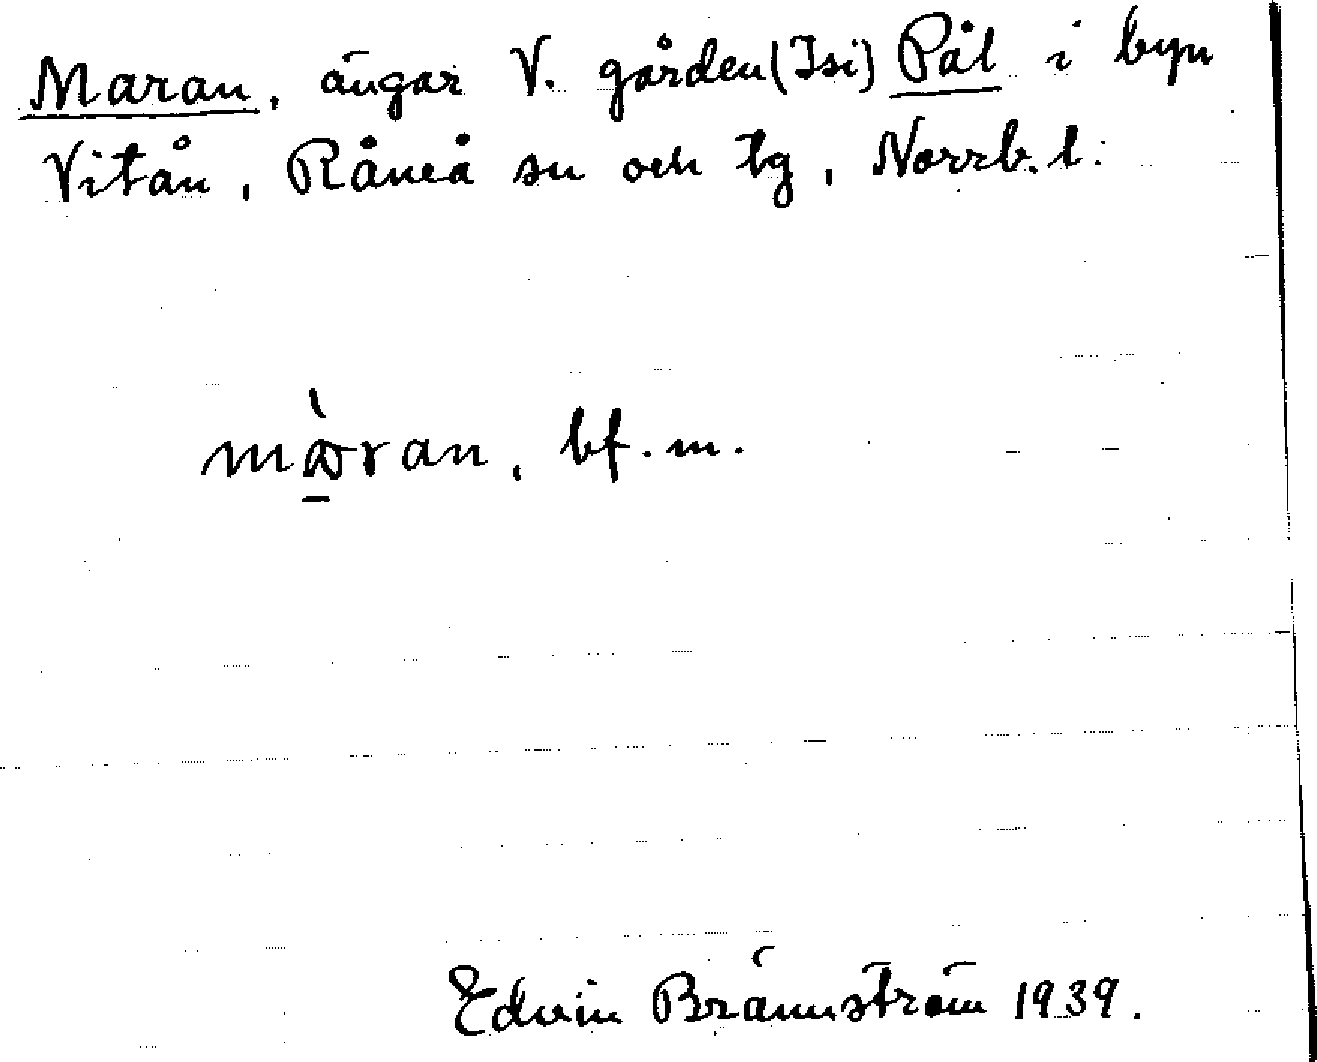 Maran, ängar V. gården (Isi) Pål i byn
Vitån, Råneå sn och tg, Norrb. l.
mɑ̱̀ran, bf. m.
Edvin Brännström 1939.